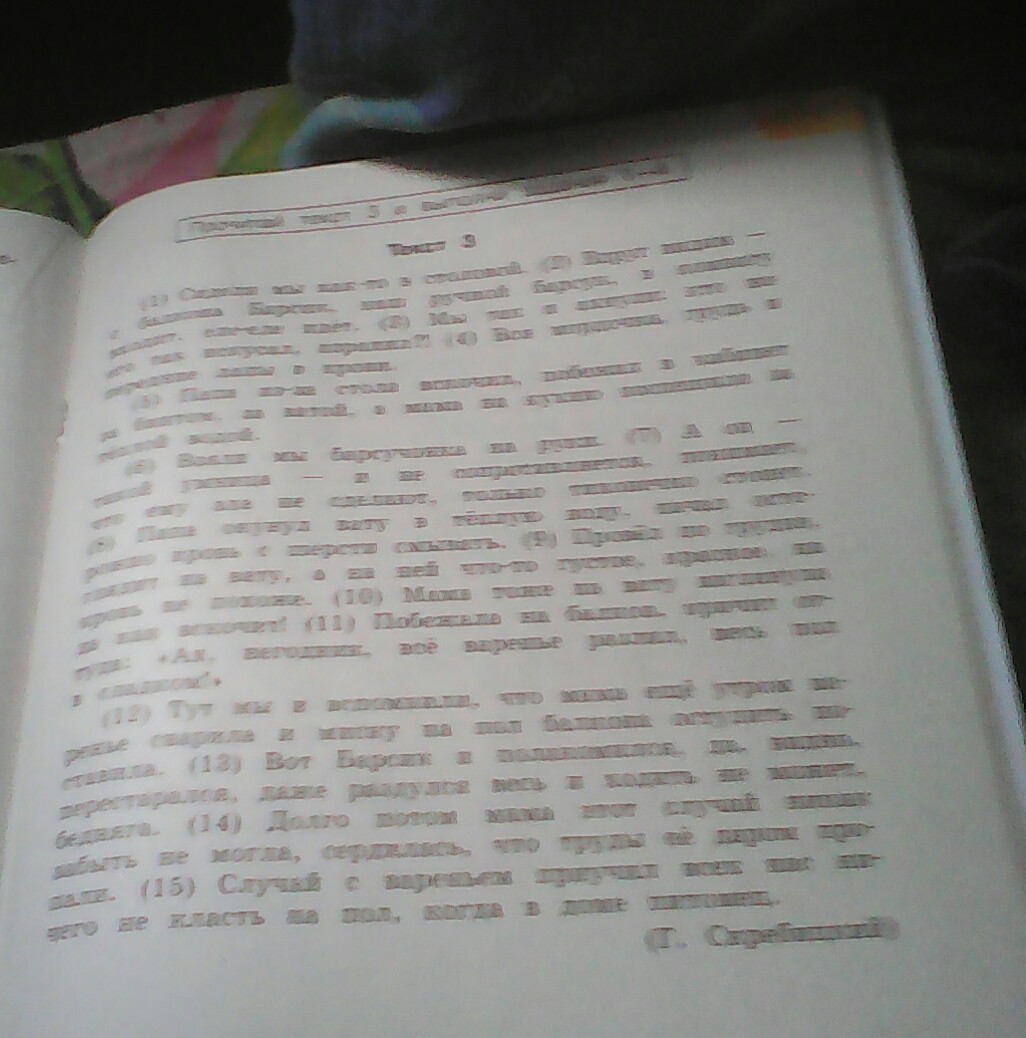 Прочитай текст 3 и выполни задания
Текст 3
(1) Сидели мы как-то в столовой. (2) Вдруг видим —
с балкона Барсик, наш ручной барсук, в комнату
еле-еле идёт. (3) Мы так и ахнули: кто же
его так искусал, изранил?! (4) Вся мордочка, грудь и
передние лапы в крови.
(5) Папа из-за стола вскочил, побежал в кабинет
за бинтом, за ватой, а мама на кухню поспешила за
тёплой водой.
(6) Взяли мы барсучонка на руки. (7) А он —
такой умница — и не сопротивляется, понимает,
что ему зла не сделают, только тихонечко стонет.
(8) Папа окунул вату в тёплую воду, начал осто-
рожно кровь с шерсти смывать. (9) Провёл по грудке,
глядит на вату, а на ней что-то густое, красное, на
кровь не похоже. (10) Мама тоже на вату взглянула
да как вскочит! (11) Побежала на балкон, кричит от-
туда: «Ах, негодник, всё варенье разлил, весь пол
в сладком!»
(12) Тут мы и вспомнили, что мама ещё утром ва-
ренье сварила и миску на пол балкона остудить по-
ставила. (13) Вот Барсик и полакомился, да, видать,
перестарался, даже раздулся весь и ходить не может,
бедняга. (14) Долго потом мама этот случай никак
забыть не могла, сердилась, что труды её даром про-
пали. (15) Случай с вареньем приучил всех нас ни-
чего не класть на пол, когда в доме питомец.
(Г. Скребицкий)